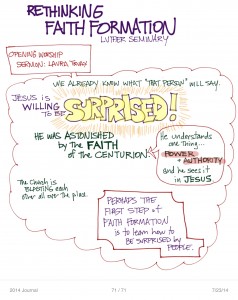 RETHINKING
FAITH FORMATION
LUTHER SEMINARY
OPENING WORSHIP
SERMON: LAURA TRUAX
WE ALREADY KNOW WHAT "THAT PERSON" WILL SAY.
JESUS IS
WILLING
TO BE
SURPRISED!
HE WAS ASTONISHED
by the FAITH
of the CENTURION.
He understands
one thing...
POWER +
AUTHORITY
And he sees it
in JESUS
The Church is
each
other all over the place.
PERHAPS THE
FIRST STEP of
FAITH FORMATION
is to learn how to
BE SURPRISED by
PEOPLE.
2014 Journal
71 / 71
7/23/14